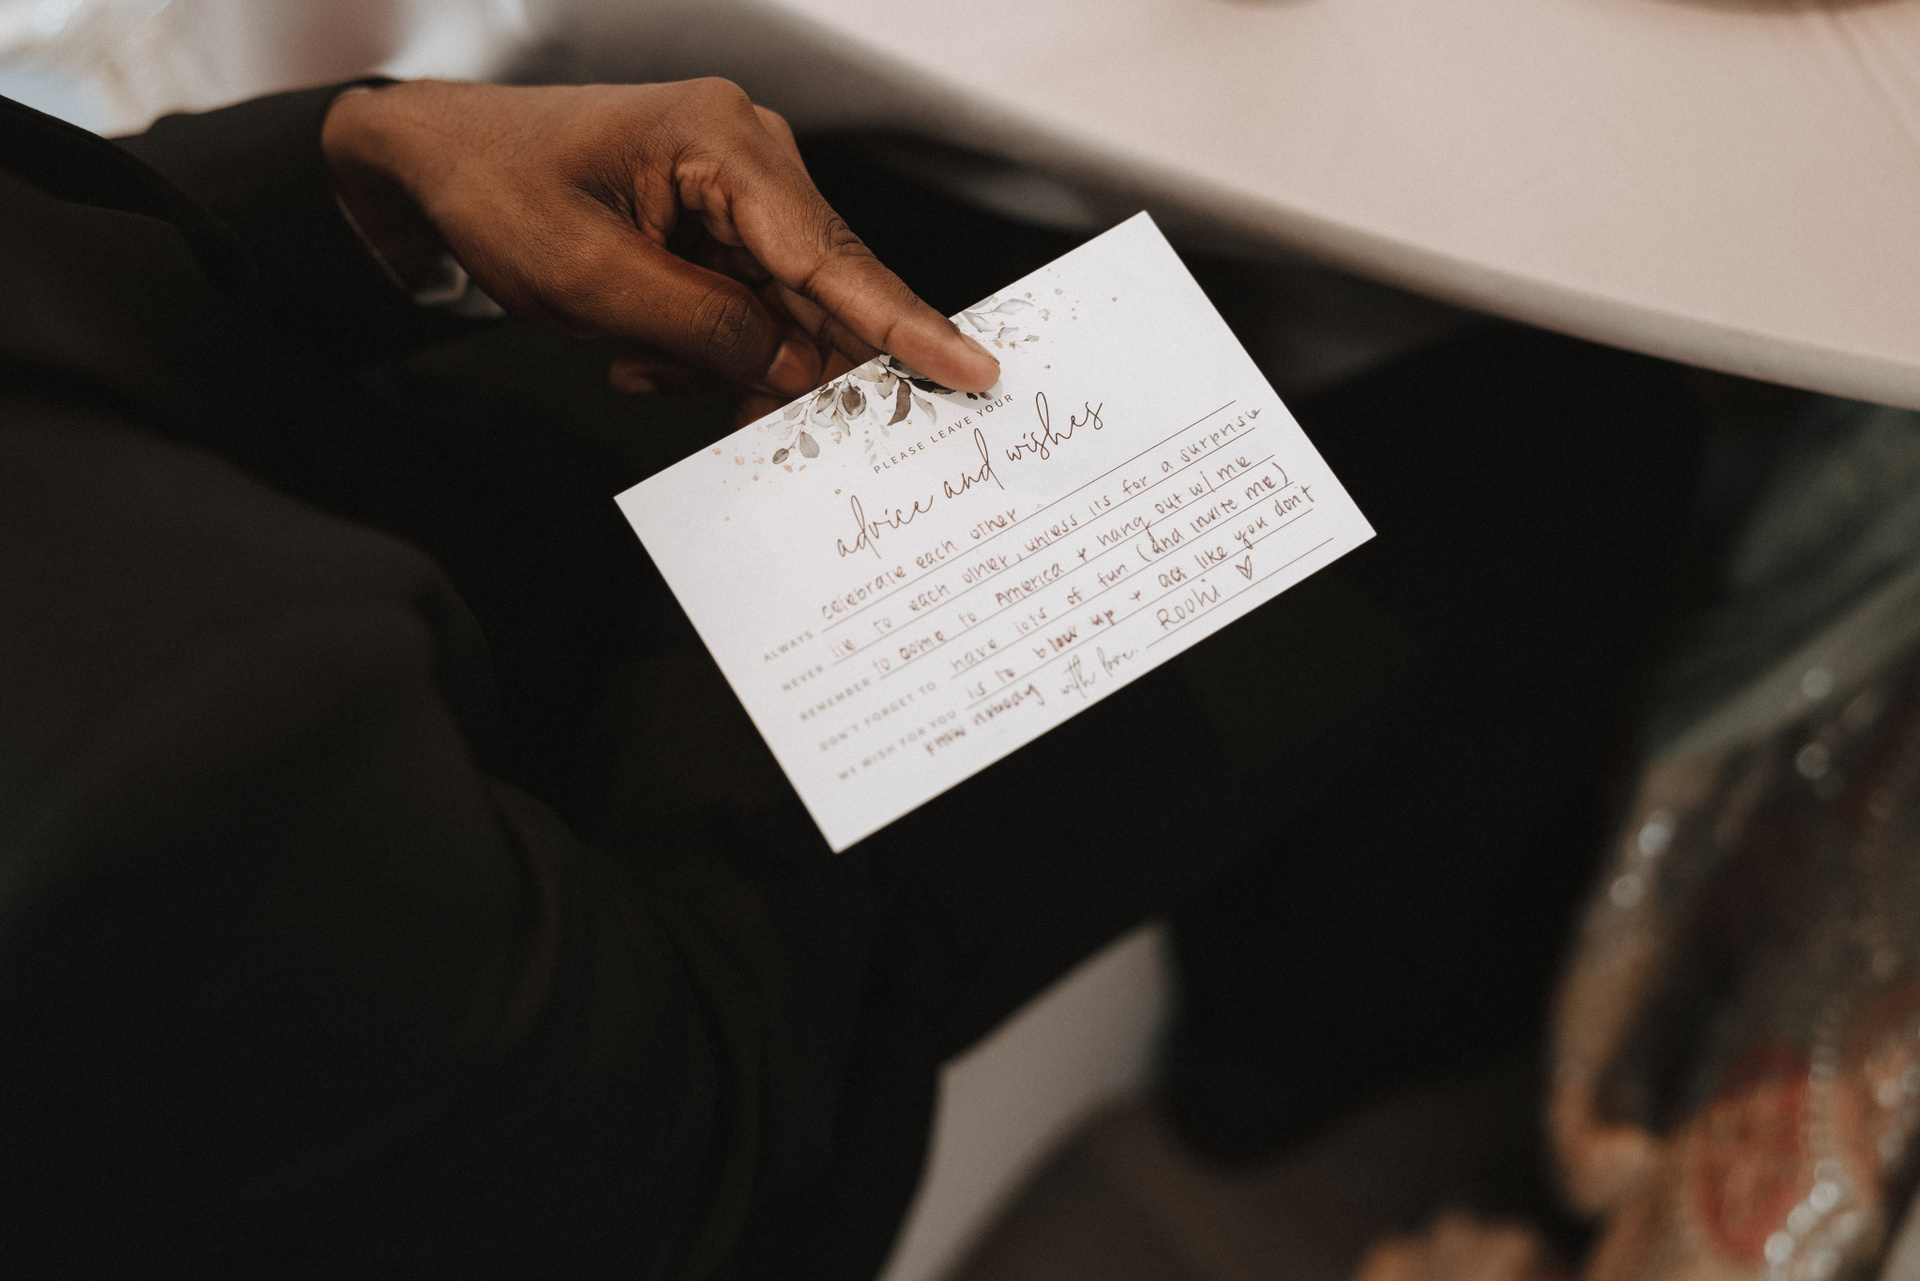 PLEASE LEAVE YOUR
advice and wishes
ALWAYS celebrate each other
NEVER lie to each other, unless its for a surprise
REMEMBER to come to America + hang out w/ me
DON'T FORGET TO have lots of fun (and invite me)
MY WISH FOR YOU is to blow up + act like you don't
know nobody with love, Roohi ♡